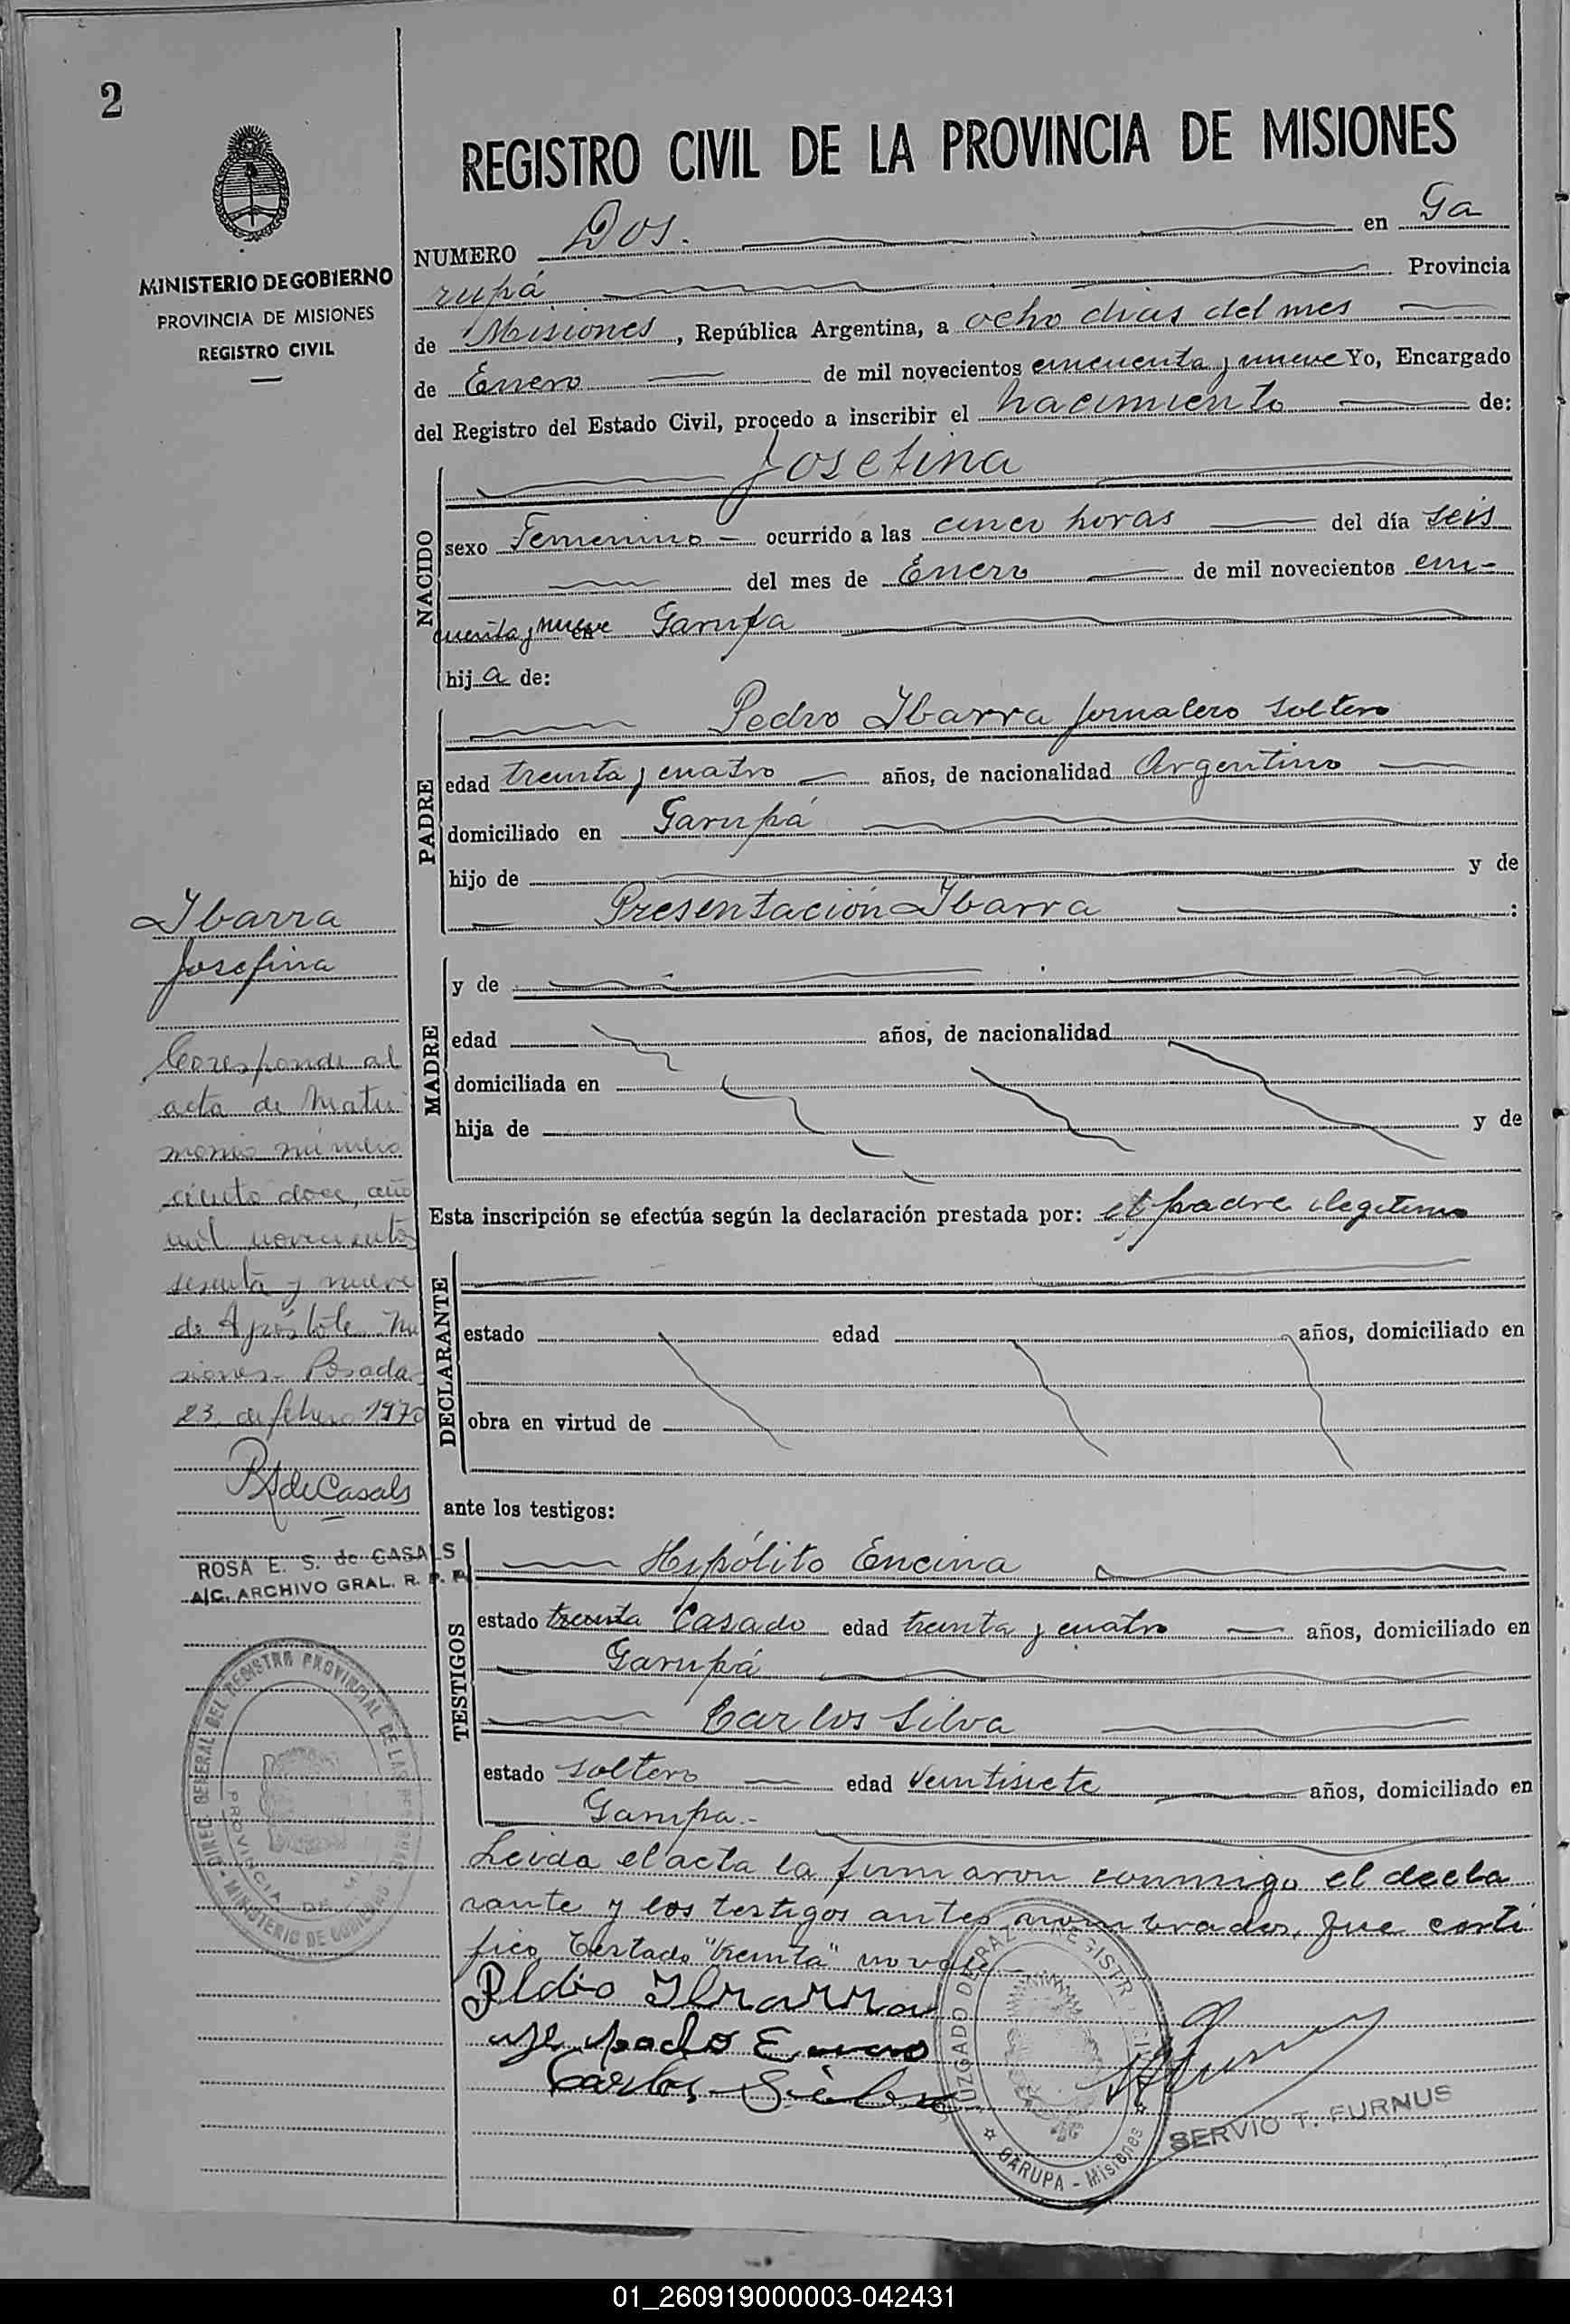 2
MINISTERIO DE GOBIERNO
PROVINCIA DE MISIONES
REGISTRO CIVIL
REGISTRO CIVIL DE LA PROVINCIA DE MISIONES
NUMERO Dos. en Ga
rupá Provincia
de Misiones, República Argentina, a ocho dias del mes
de Enero de mil novecientos cincuenta y nueve Yo, Encargado
del Registro del Estado Civil, procedo a inscribir el nacimiento de:
Josefina
NACIDO
sexo Femenino ocurrido a las cinco horas del día seis
del mes de Enero de mil novecientos cin-
cuenta y nueve en Garupa
hija de:
PADRE
Pedro Ibarra jornalero soltero
edad treinta y cuatro años, de nacionalidad Argentino
domiciliado en Garupá
hijo de y de
Presentación Ibarra :
MADRE
y de
edad años, de nacionalidad
domiciliada en
hija de y de
Esta inscripción se efectúa según la declaración prestada por: el padre ilegitimo
DECLARANTE
estado edad años, domiciliado en
obra en virtud de
ante los testigos:
TESTIGOS
Hipólito Encina
estado treinta Casado edad treinta y cuatro años, domiciliado en
Garupá
Carlos Silva
estado soltero edad veintisiete años, domiciliado en
Garupa.-
Leida el acta la firmaron conmigo el decla
rante y los testigos antes nombrados, que certi
fico Testado "treinta" no vale
Pedro Ibarra
Carlos Silva
SERVIO T. FURNUS
JUZGADO DE PAZ Y REGISTRO CIVIL
GARUPA - Misiones
Ibarra
Josefina
Corresponde al
acta de Matri
monio número
ciento doce, año
mil novecientos
sesenta y nueve
de Apóstole Mi
siones. Posadas
23 de febrero 1970
RS de Casals
ROSA E. S. de CASALS
A/C. ARCHIVO GRAL. R. P. P.
DIREC. GENERAL DEL REGISTRO PROVINCIAL DE LAS PERSONAS
MINISTERIO DE GOBIERNO
PROVINCIA DE
01_260919000003-042431